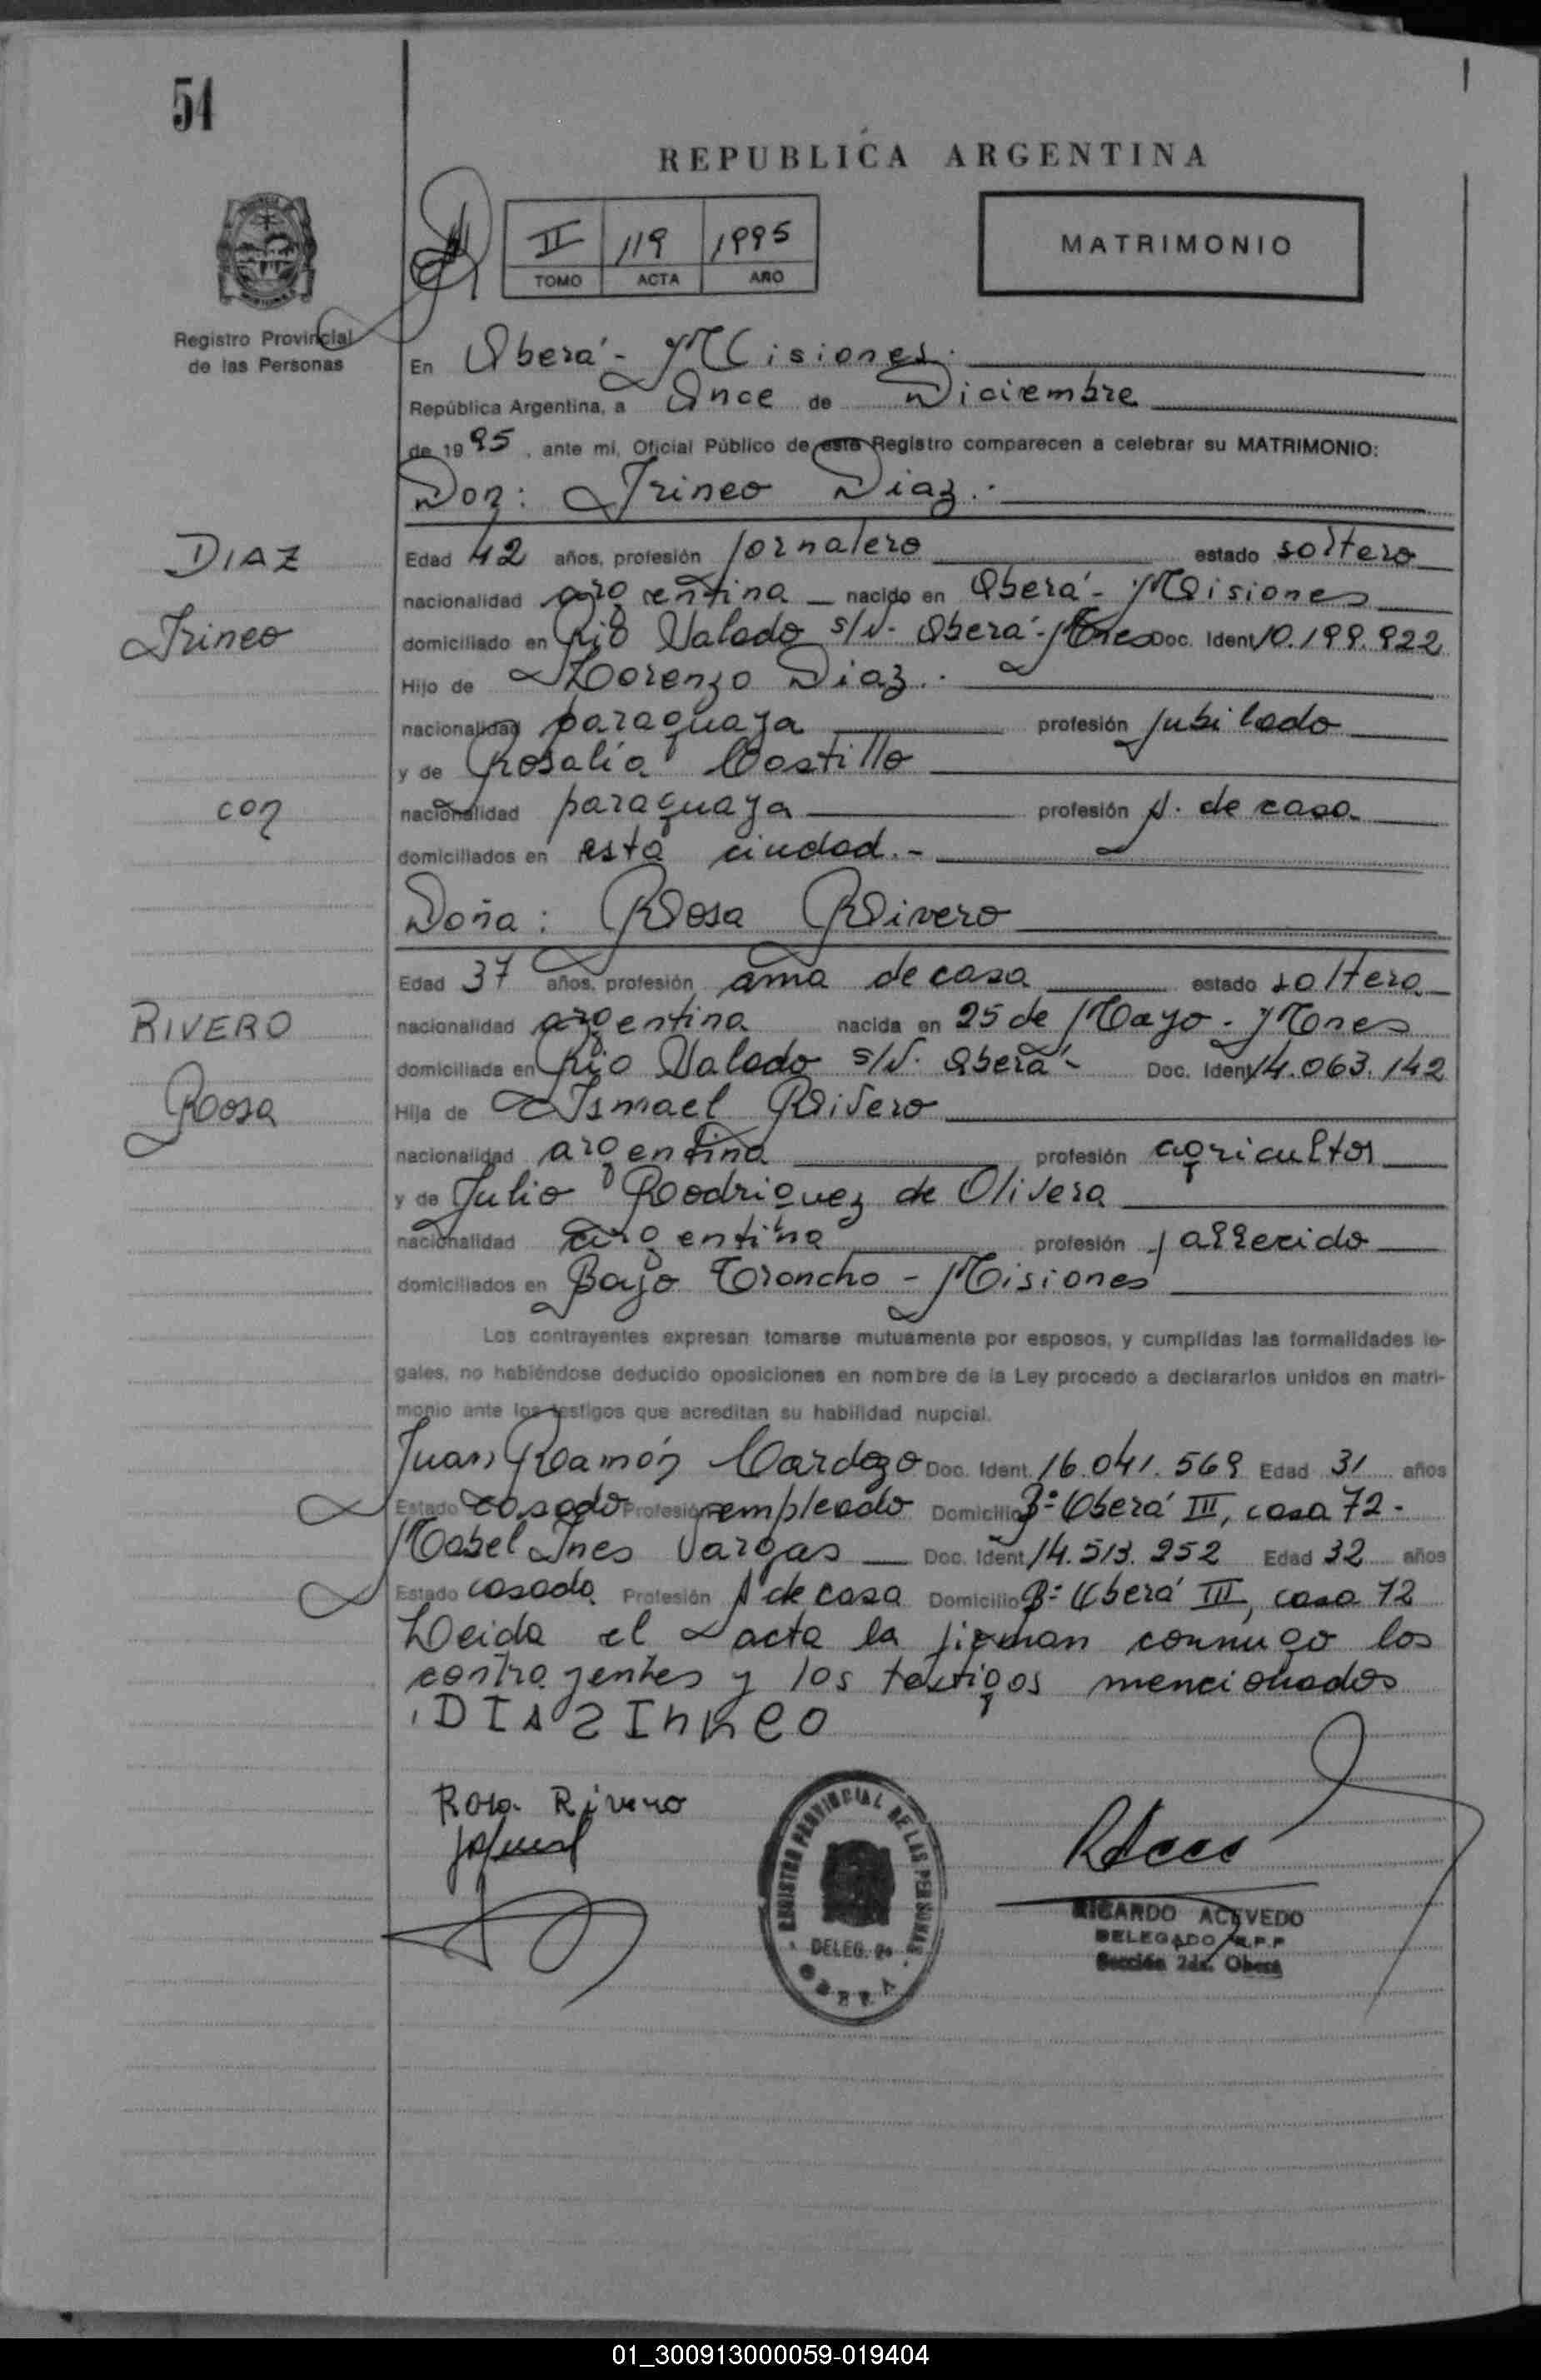 51
REPUBLICA ARGENTINA
II 119 1995
TOMO ACTA AÑO
MATRIMONIO
Registro Provincial
de las Personas
En Oberá - Misiones.
República Argentina, a Once de Diciembre
de 1995, ante mi, Oficial Público de este Registro comparecen a celebrar su MATRIMONIO:
Don: Irineo Diaz.-
DIAZ
Irineo
con
RIVERO
Rosa
Edad 42 años, profesión Jornalero estado soltero
nacionalidad argentina nacido en Oberá - Misiones
domiciliado en Rio Salado s/N - Oberá - Mnes Doc. Ident 10.199.922
Hijo de Lorenzo Diaz.-
nacionalidad paraguaya profesión Jubilado
y de Rosalia Castillo
nacionalidad paraguaya profesión A. de casa
domiciliados en esta ciudad.-
Doña: Rosa Rivero
Edad 37 años, profesión ama de casa estado soltera
nacionalidad argentina nacida en 25 de Mayo - Mnes
domiciliada en Rio Salado s/N. Oberá - Doc. Ident 14.063.142
Hija de Ismael Rivero
nacionalidad argentina profesión agricultor
y de Julia Rodriguez de Olivera
nacionalidad argentina profesión fallecida
domiciliados en Bajo Troncho - Misiones
Los contrayentes expresan tomarse mutuamente por esposos, y cumplidas las formalidades le-
gales, no habiéndose deducido oposiciones en nombre de la Ley procedo a declararlos unidos en matri-
monio ante los testigos que acreditan su habilidad nupcial.
Juan Ramón Cardozo Doc. Ident. 16.041.569 Edad 31 años
Estado casado Profesión empleado Domicilio Bº Oberá III, casa 72.
Mabel Ines Vargas Doc. Ident 14.513.952 Edad 32 años
Estado casada Profesión A de casa Domicilio Bº Oberá III, casa 72
Leida el acta la firman conmigo los
contrayentes y los testigos mencionados
DIAZ
Rosa Rivero
REGISTRO PROVINCIAL DE LAS PERSONAS
DELEG. 2a
OBERA
RICARDO ACEVEDO
DELEGADO R.P.P
Sección 2da. Oberá
01_300913000059-019404